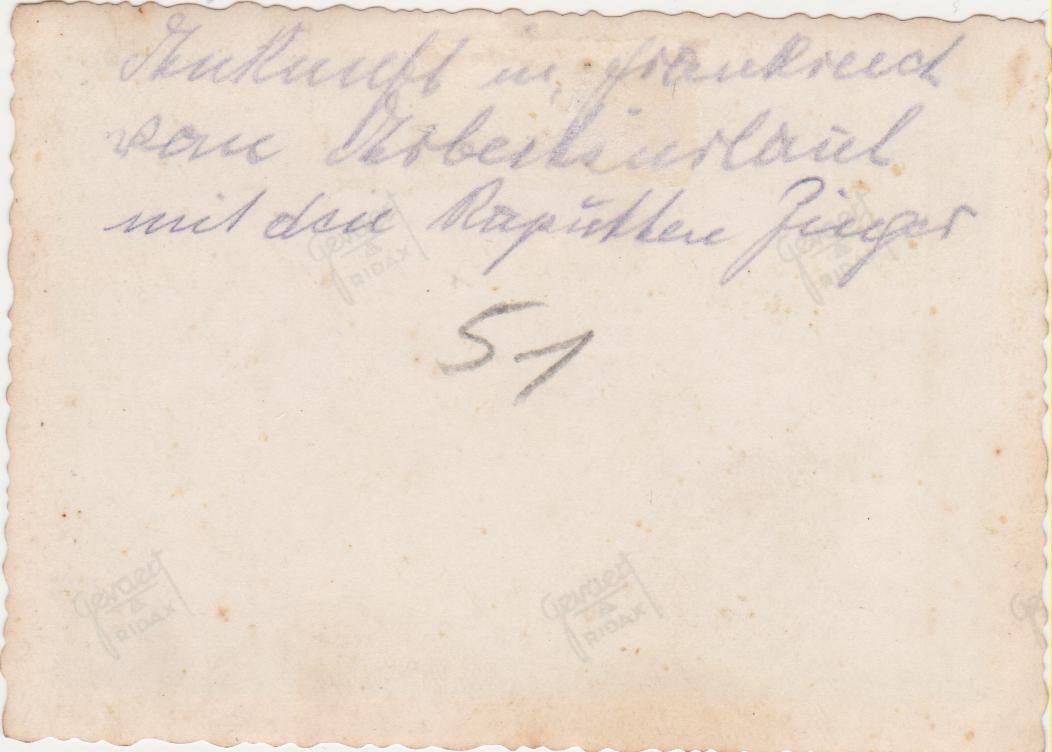 Ankunft in Frankreich
von Arbeitsurlaub
mit den kaputten Finger
51
Gevaert
RIDAX
Gevaert
RIDAX
Gevaert
RIDAX
Gevaert
RIDAX
Ge